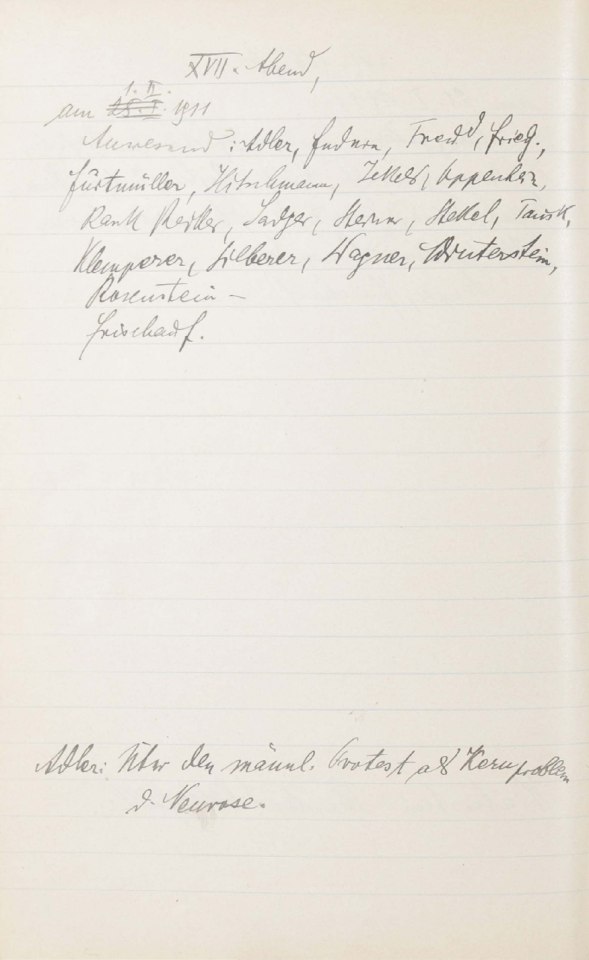 XVII. Abend,
1. II.
am 25. I. 1911
Anwesend: Adler, Federn, Freud, Friedj.,
Furtmüller, Hitschmann, Jekels, Oppenheim,
Rank, Reitler, Sadger, Steiner, Stekel, Tausk,
Klemperer, Silberer, Wagner, Winterstein,
Rosenstein –
Frischauf.
Adler: Über den männl. Protest als Kernproblem
d. Neurose.